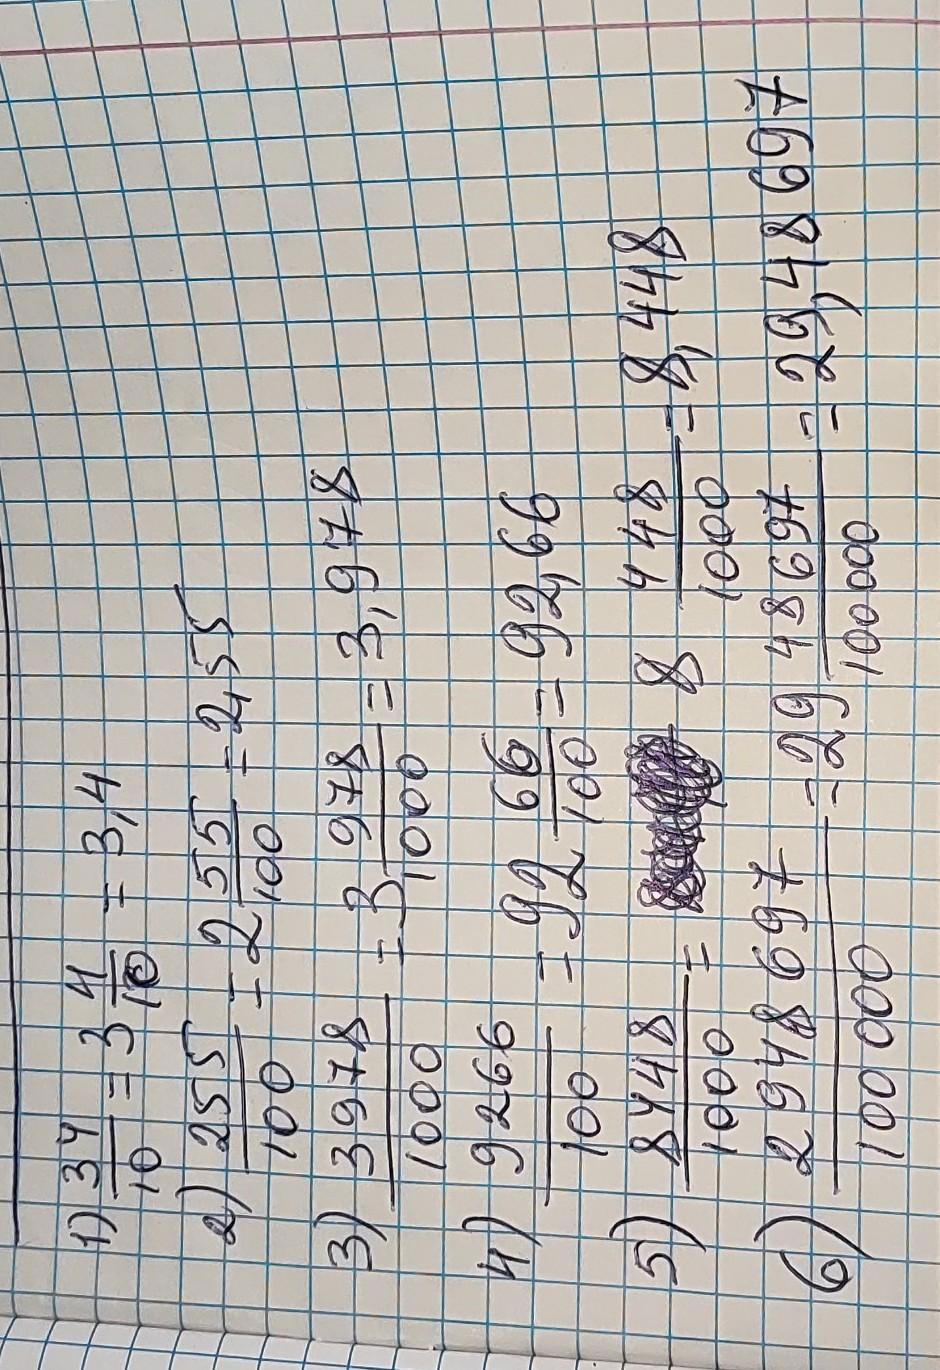 1) 34/10 = 3 4/10 = 3,4
2) 255/100 = 2 55/100 = 2,55
3) 3978/1000 = 3 978/1000 = 3,978
4) 9266/100 = 92 66/100 = 92,66
5) 8448/1000 = 8 448/1000 = 8,448
6) 2948697/100 000 = 29 48697/100000 = 29,48697